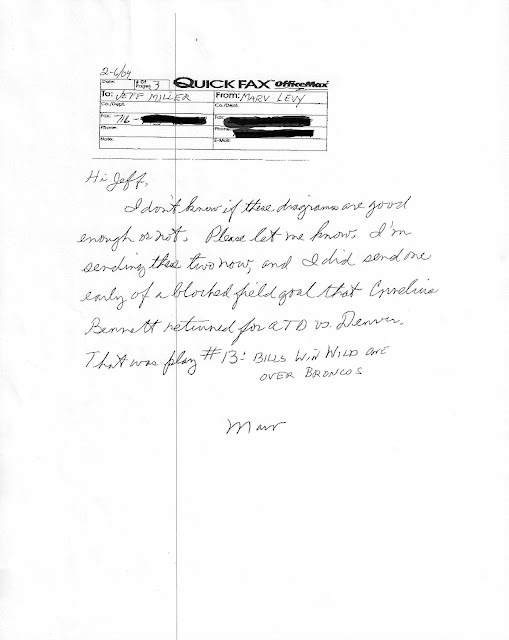 2-6/09
QUICK FAX OfficeMax
Date: # Of Pages 3
To: JEFF MILLER From: MARV LEVY
Co./Dept. Co./Dept.
Fax: 716 - Fax:
Phone: Phone:
Note: E-Mail:
Hi Jeff,
I don't know if these diagrams are good
enough or not. Please let me know. I'm
sending these two now, and I did send one
early of a blocked field goal that Cornelius
Bennett returned for a TD vs. Denver.
That was play #13: BILLS WIN WILD ONE
OVER BRONCOS
Marv